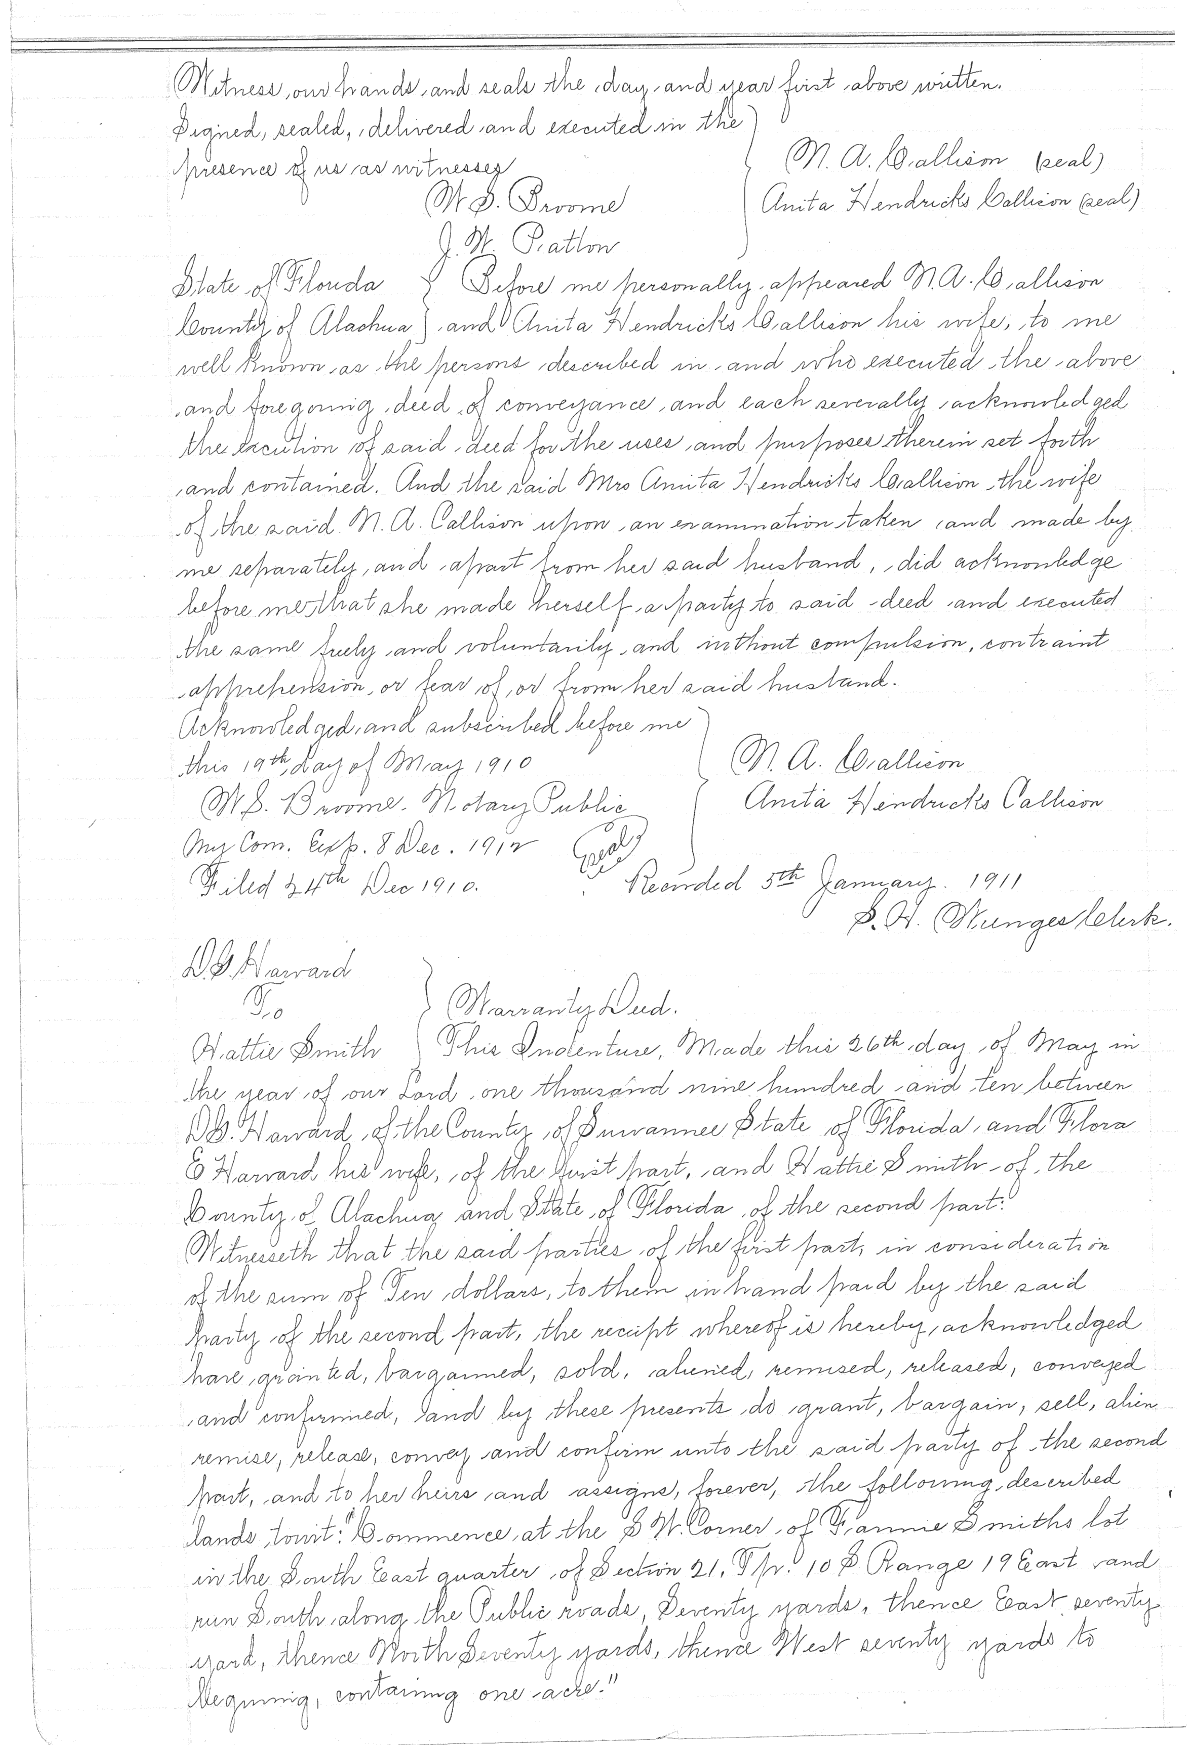 Witness our hands and seals the day and year first above written.
Signed, sealed, delivered and executed in the
presence of us as witnesses
N. A. Callison (seal)
W S. Broome
Anita Hendricks Callison (seal)
J. W. Patton
State of Florida } Before me personally appeared N. A. Callison
County of Alachua } and Anita Hendricks Callison his wife, to me
well known as the persons described in and who executed the above
and foregoing deed of conveyance and each severally acknowledged
the excution of said deed for the uses and purposes therein set forth
and contained. And the said Mrs Anita Hendricks Callison the wife
of the said N. A. Callison upon an examination taken and made by
me separately and apart from her said husband, did acknowledge
before me that she made herself a party to said deed and executed
the same freely and voluntarily and without compulsion, contraint
apprehension, or fear of, or from her said husband.
Acknowledged and subscribed before me
this 19th day of May 1910
N. A. Callison
W S. Broome. Notary Public
Anita Hendricks Callison
My Com. Exp. 8 Dec. 1912 (seal)
Filed 24th Dec 1910. Recorded 5th January. 1911
S. H. Clerk.
Haward
To } Warranty Deed.
Hattie Smith } This Indenture, Made this 26th day of May in
the year of our Lord one thousand nine hundred and ten between
Haward of the County of Suwannee State of Florida, and Flora
E Haward his wife, of the first part, and Hattie Smith of the
County of Alachua and State of Florida of the second part:
Witnesseth that the said parties of the first part, in consideration
of the sum of Ten dollars, to them in hand paid by the said
party of the second part, the receipt whereof is hereby acknowledged
have granted, bargained, sold, aliened, remised, released, conveyed
and confirmed, and by these presents do grant, bargain, sell, alien
remise, release, convey and confirm unto the said party of the second
part, and to her heirs and assigns, forever, the following described
lands, towit: "Commence at the S W. Corner of Fannie Smiths lot
in the South East quarter of Section 21, Tp. 10 S Range 19 East and
run South along the Public roads, Seventy yards, thence East seventy
yard, thence North Seventy yards, thence West seventy yards to
beginning, containing one acre."